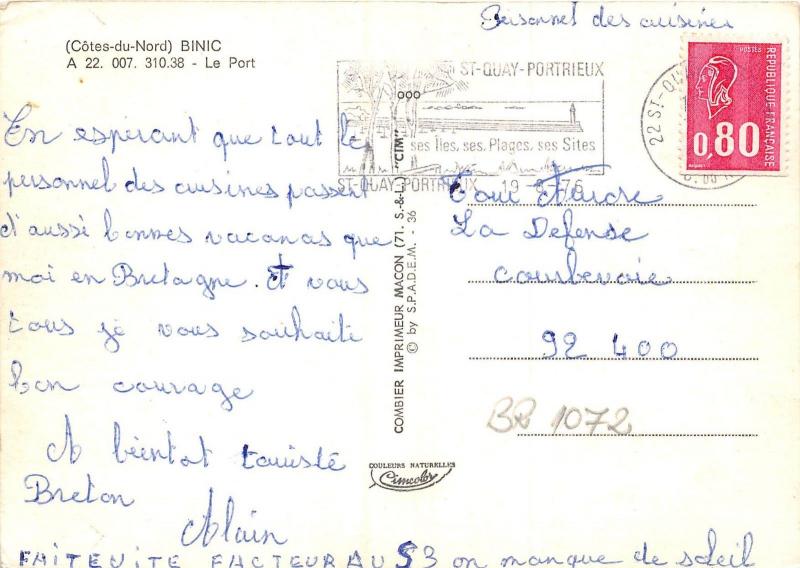 Personnel des cuisines
(Côtes-du-Nord) BINIC
A 22. 007. 310.38 - Le Port
En espérant que tout le
personnel des cuisines passent
d'aussi bonnes vacanas que
moi en Bretagne. Et vous
tous je vous souhaite
bon courage
A bientot touiste
Breton
Alain
FAITEVITE FACTEURAU 53 on manque de soleil
COMBIER IMPRIMEUR MACON (71. S.-&-L.) "CIM"
© by S.P.A.D.E.M. - 36
COULEURS NATURELLES
Cimcolor
ST-QUAY-PORTRIEUX
ses Iles, ses Plages, ses Sites
ST-QUAY-PORTRIEUX 19-8-76
22 ST-QU
POSTES
REPUBLIQUE FRANÇAISE
0,80
Tour
La Defense
Courbevoie
92 400
BR 1072